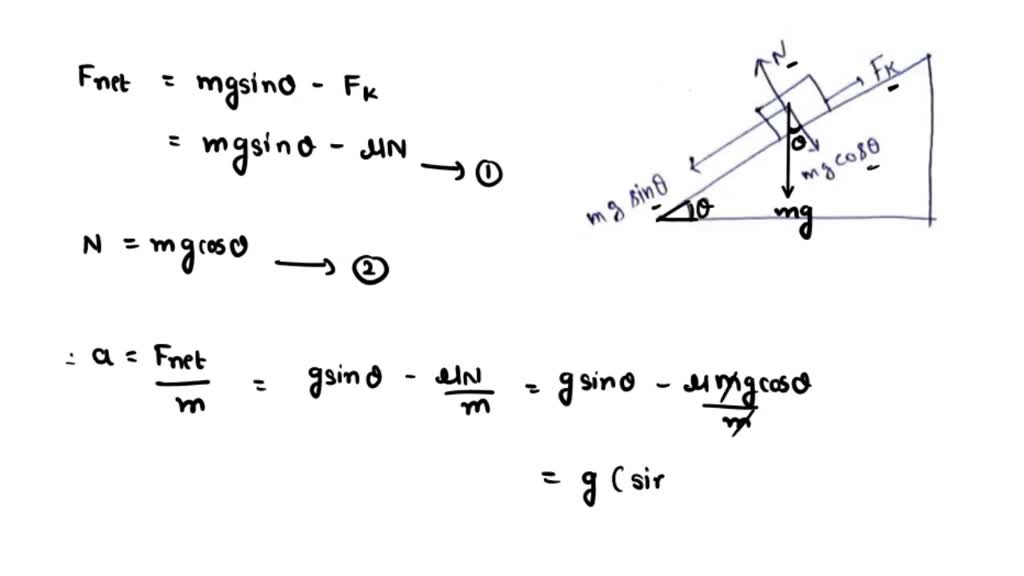 Fnet = mgsinθ - FK
= mgsinθ - μN → ①
N = mgcosθ → ②
∴ a = Fnet/m = gsinθ - μN/m = gsinθ - μmgcosθ/m
= g (sin
N
FK
θ
mg cosθ
mg sinθ
θ
mg